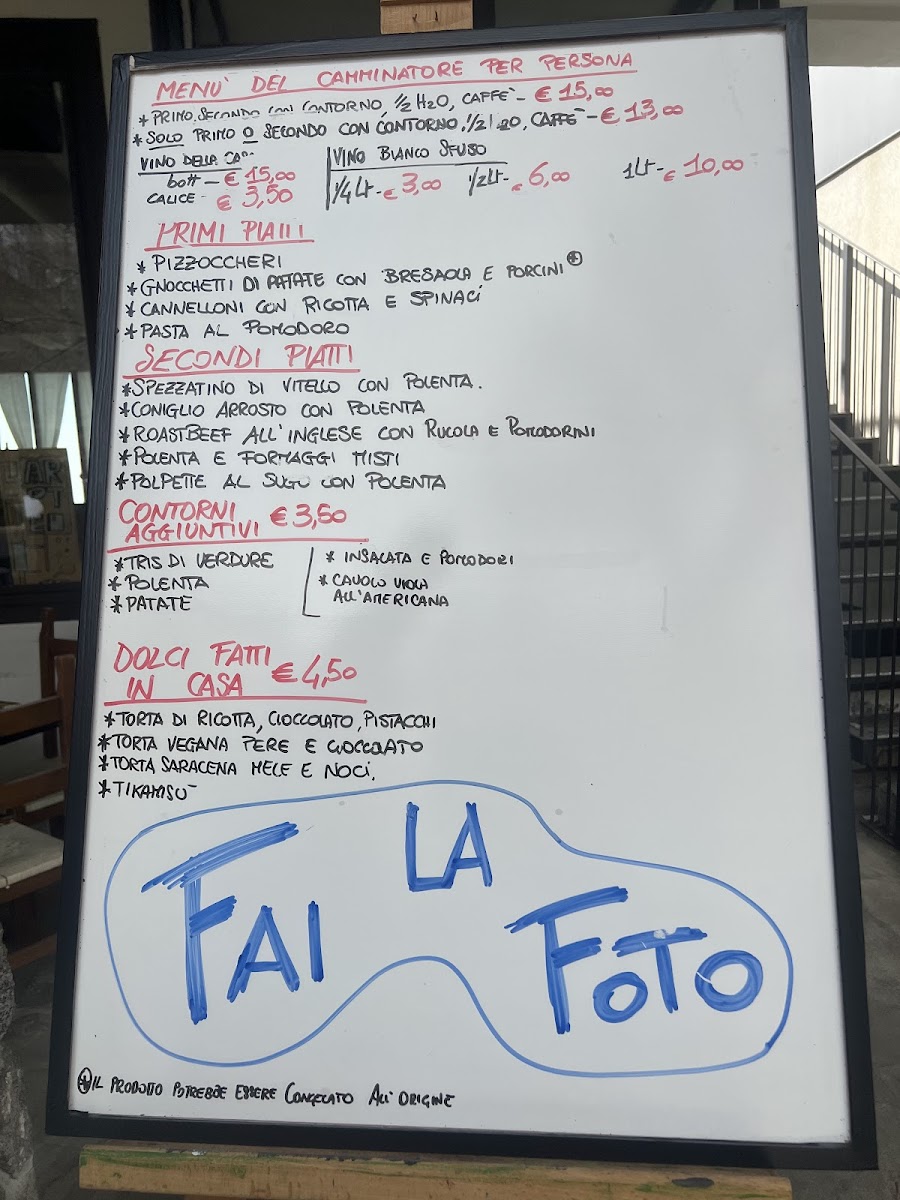 MENU' DEL CAMMINATORE PER PERSONA
* PRIMO, SECONDO CON CONTORNO, 1/2 H2O, CAFFE' - € 15,00
* SOLO PRIMO O SECONDO CON CONTORNO, 1/2 H2O, CAFFE' - € 13,00
VINO DELLA CASA
bott - € 15,00
CALICE - € 3,50
VINO BIANCO SFUSO
1/4 Lt - € 3,00 1/2 Lt - € 6,00 1 Lt - € 10,00
PRIMI PIATTI
* PIZZOCCHERI
* GNOCCHETTI DI PATATE CON BRESAOLA E PORCINI ⊛
* CANNELLONI CON RICOTTA E SPINACI
* PASTA AL POMODORO
SECONDI PIATTI
* SPEZZATINO DI VITELLO CON POLENTA.
* CONIGLIO ARROSTO CON POLENTA
* ROASTBEEF ALL'INGLESE CON RUCOLA E POMODORINI
* POLENTA E FORMAGGI MISTI
* POLPETTE AL SUGO CON POLENTA
CONTORNI
AGGIUNTIVI € 3,50
* TRIS DI VERDURE
* POLENTA
* PATATE
* INSALATA E POMODORI
* CAVOLO VIOLA
ALL'AMERICANA
DOLCI FATTI
IN CASA € 4,50
* TORTA DI RICOTTA, CIOCCOLATO, PISTACCHI
* TORTA VEGANA PERE E CIOCCOLATO
* TORTA SARACENA MELE E NOCI.
* TIRAMISU'
FAI LA FOTO
⊛ IL PRODOTTO POTREBBE ESSERE CONGELATO ALL'ORIGINE